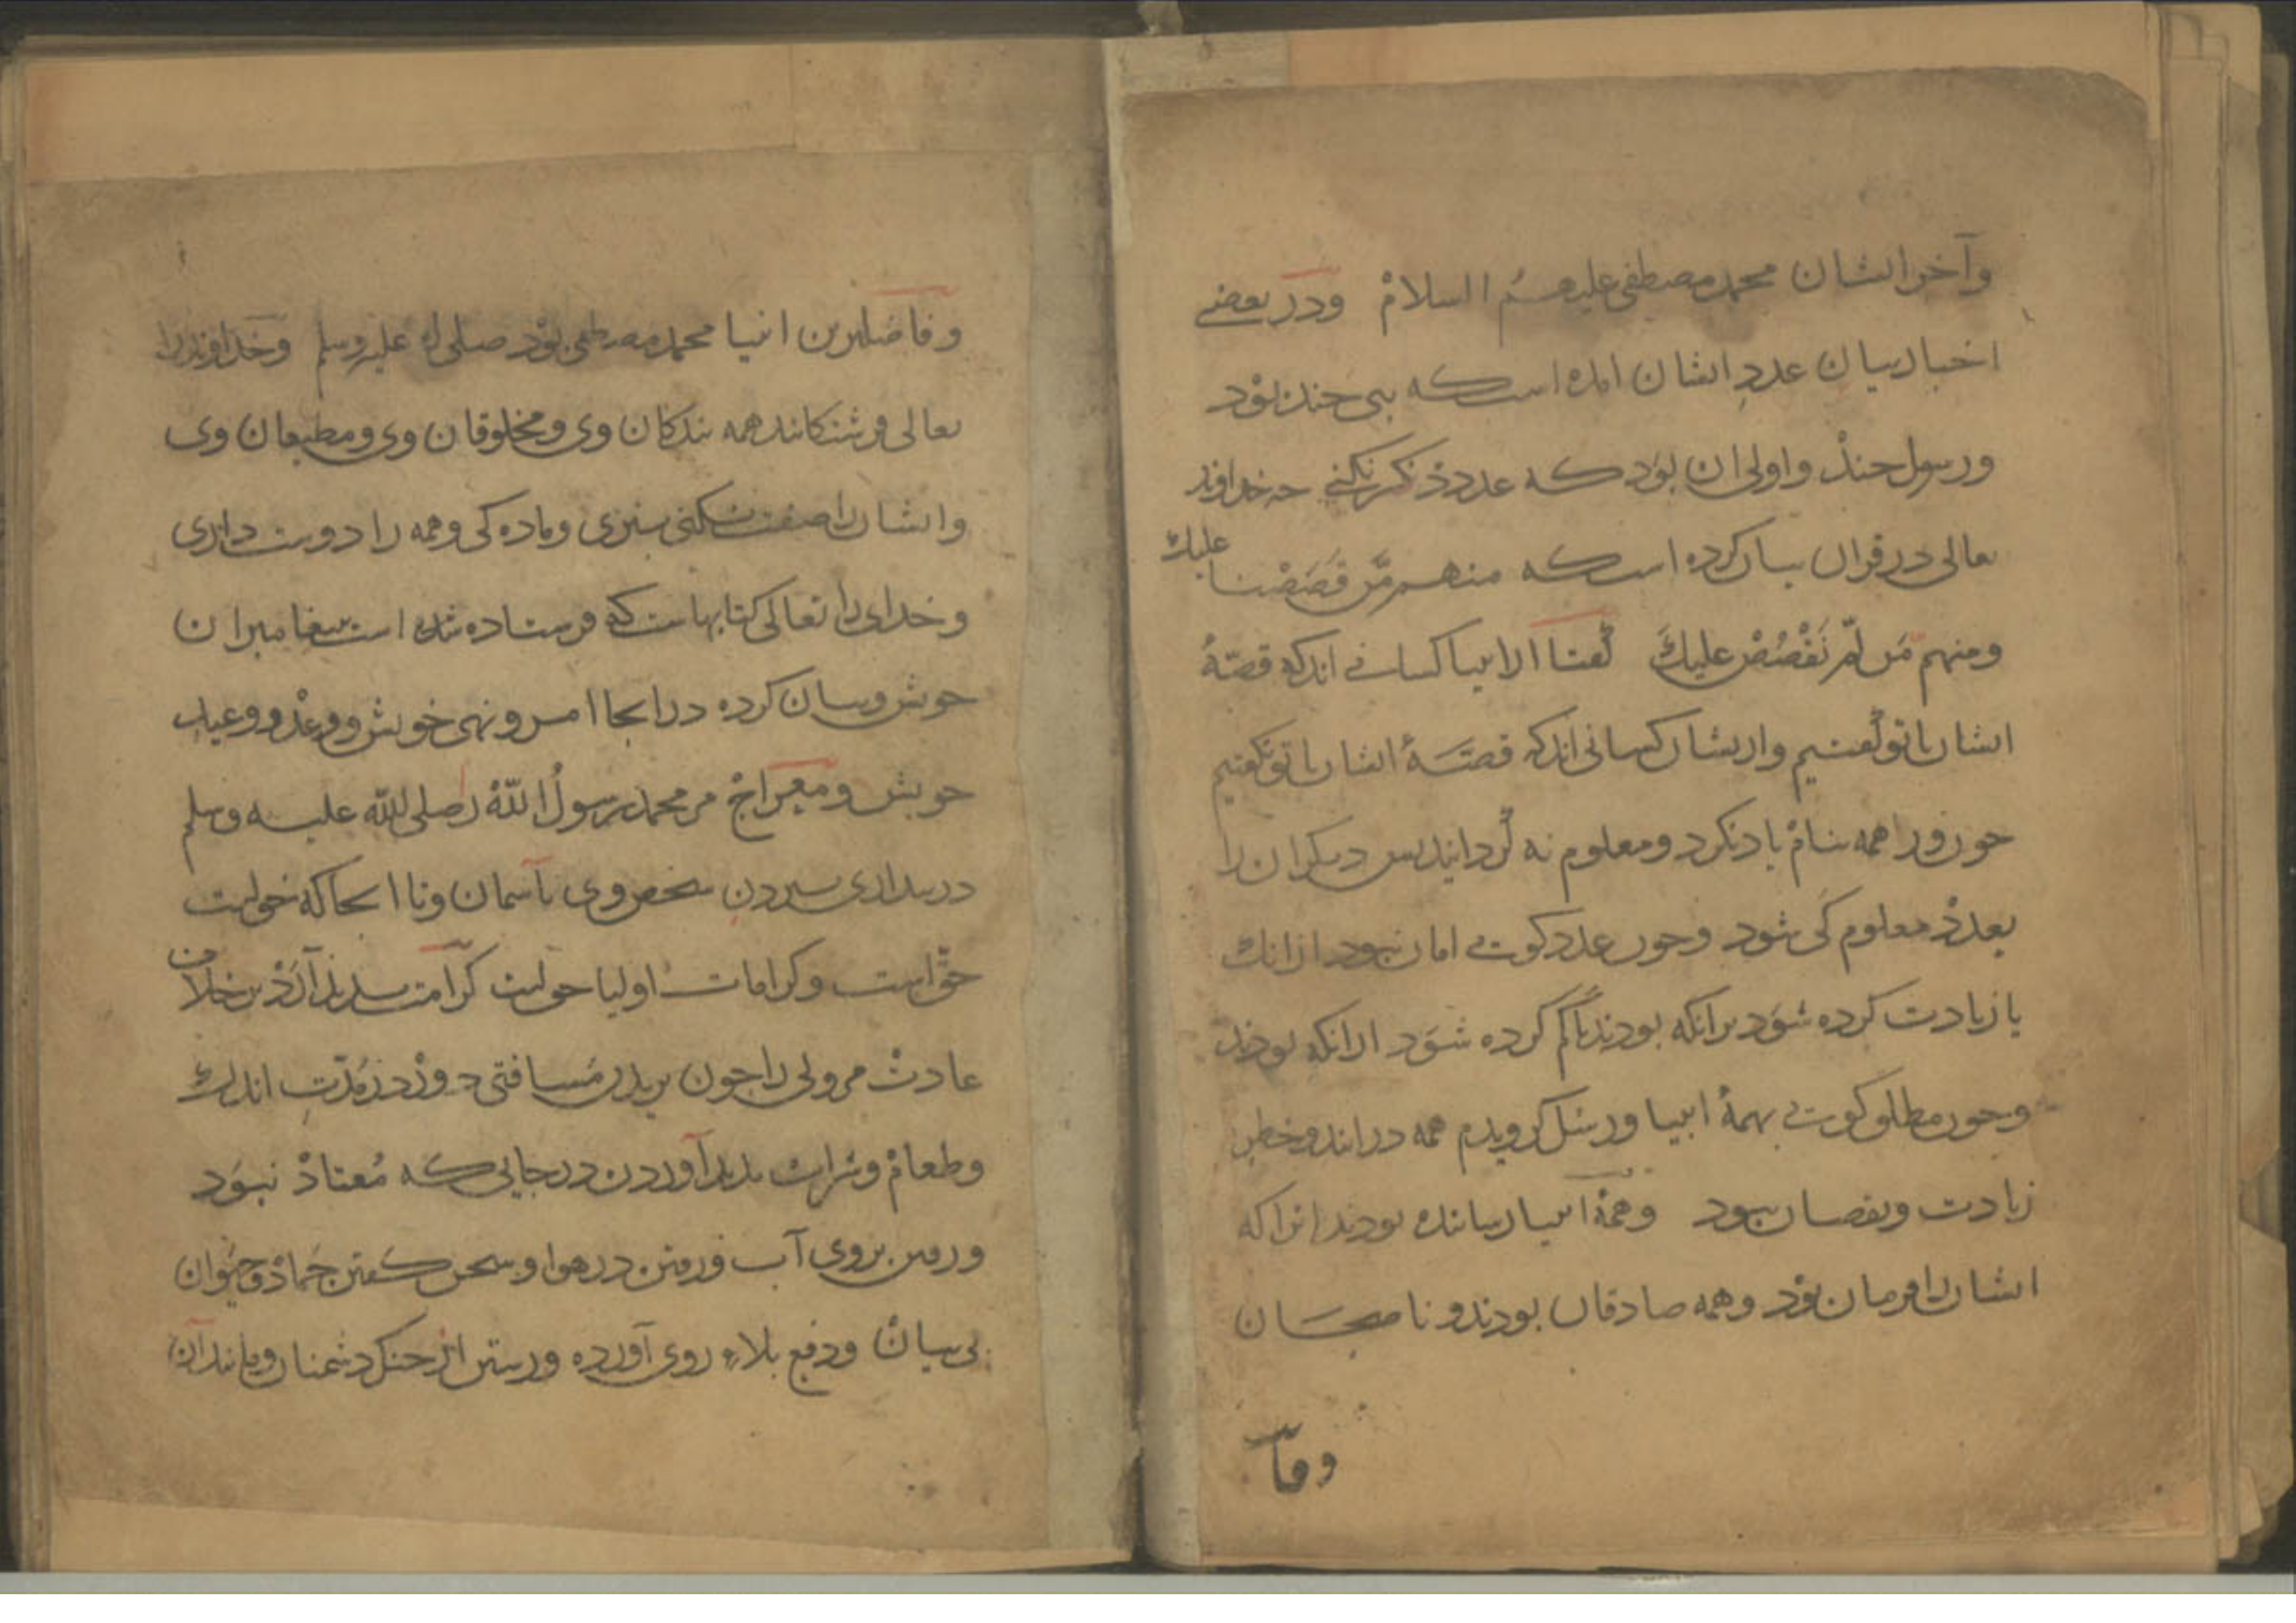 وآخر ایشان محمد مصطفی علیهم السلام ودر بعضے
اخبار بیان عددِ ایشان امده است که نبی چند بوْد
ورسول چندْ واولی ان بوَد که عدد ذکر نکنی چه خداوند
تعالی در قران بیان کرده است که منهم مَّن قَصَصْنا علیك
ومنهم مَّن لَّم نَقْصُصْ علیكَ گفتا از انبیا کسانی اند که قصّهٔ
ایشان با تو گفتیم واز یشان کسانی اند که قصّهٔ ایشان با تو نگفتیم
چون ورا همه بنامْ یاد نکرد ومعلوم نه گردانید پس دیگران را
بعددْ معلوم کَی شود وچون عدد گوئے امان نبود از انك
یا زیادت کرده شوَد برانکه بودند یا کم کرده شوَد از انکه بودند
وچون مطلق گوئے بهمهٔ انبیا ورسُل گرویدم همه در ایند وخطر
زیادت ونقصان نبود وهمهٔ انبیا رساننده بودند انرا که
ایشان را فرمان بوْد وهمه صادقان بودند وناصحان
وفا
وفاضلترین انبیا محمد مصطفی بوْد صلی الله علیه وسلم وخداوند را
تعالی فرشتگانند همه بندگان وی ومخلوقان وی ومطیعان وی
وایشان را صفت نکنی بنری وماده گی وهمه را دوست داری
وخدای را تعالی کتابهاست که فرستاده شده است بپیغامبران
خویش وبیان کرده درانجا امر ونهی خویش ووعدْ ووعید
خویش ومعراجْ مر محمد رسولُ اللّٰهْ را صلی اللّٰه علیه وسلم
در بیداری ببردن شخص وی بآسمان وتا انجا که خواست
حقّ است وکرامات اولیا حق است کرامت پدید آرَدْ بر خلاف
عادتْ مر ولی را چون بریدن مُسافتی دور در مُدّتِ اندك
وطعامْ وشراب پدید آوردن در جایی که مُعتادْ نبوَد
ورفتن بروی آب ورفتن در هوا وسخن گفتن جَمادْ وحیَوان
بی بیانْ ودفع بلاءِ روی آورده ورستن از چنگ دشمنان ومانند آن